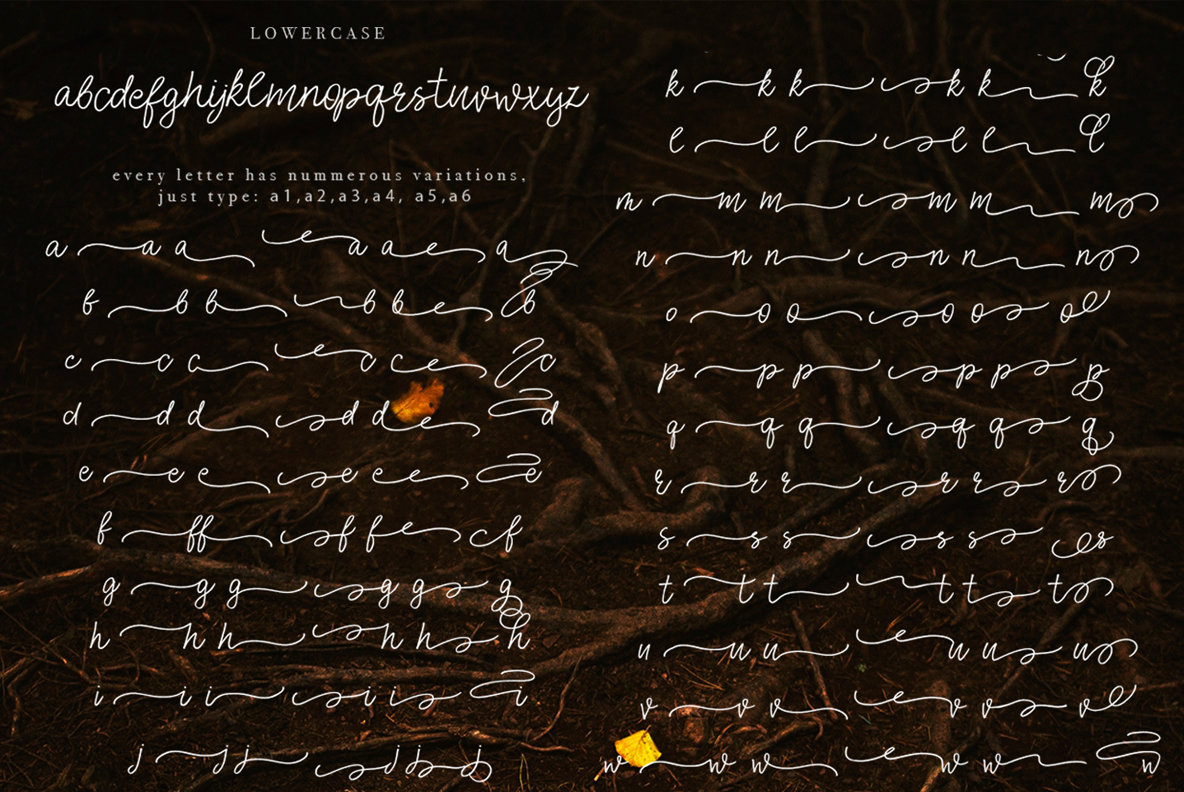 LOWERCASE
abcdefghijklmnopqrstuvwxyz
every letter has nummerous variations,
just type: a1,a2,a3,a4, a5,a6
a a a a a a
b b b b b b
c c c c c c
d d d d d d
e e e e e e
f f f f f f
g g g g g g
h h h h h h
i i i i i i
j j j j j j
k k k k k k
l l l l l l
m m m m m m
n n n n n n
o o o o o o
p p p p p p
q q q q q q
r r r r r r
s s s s s s
t t t t t t
u u u u u u
v v v v v v
w w w w w w